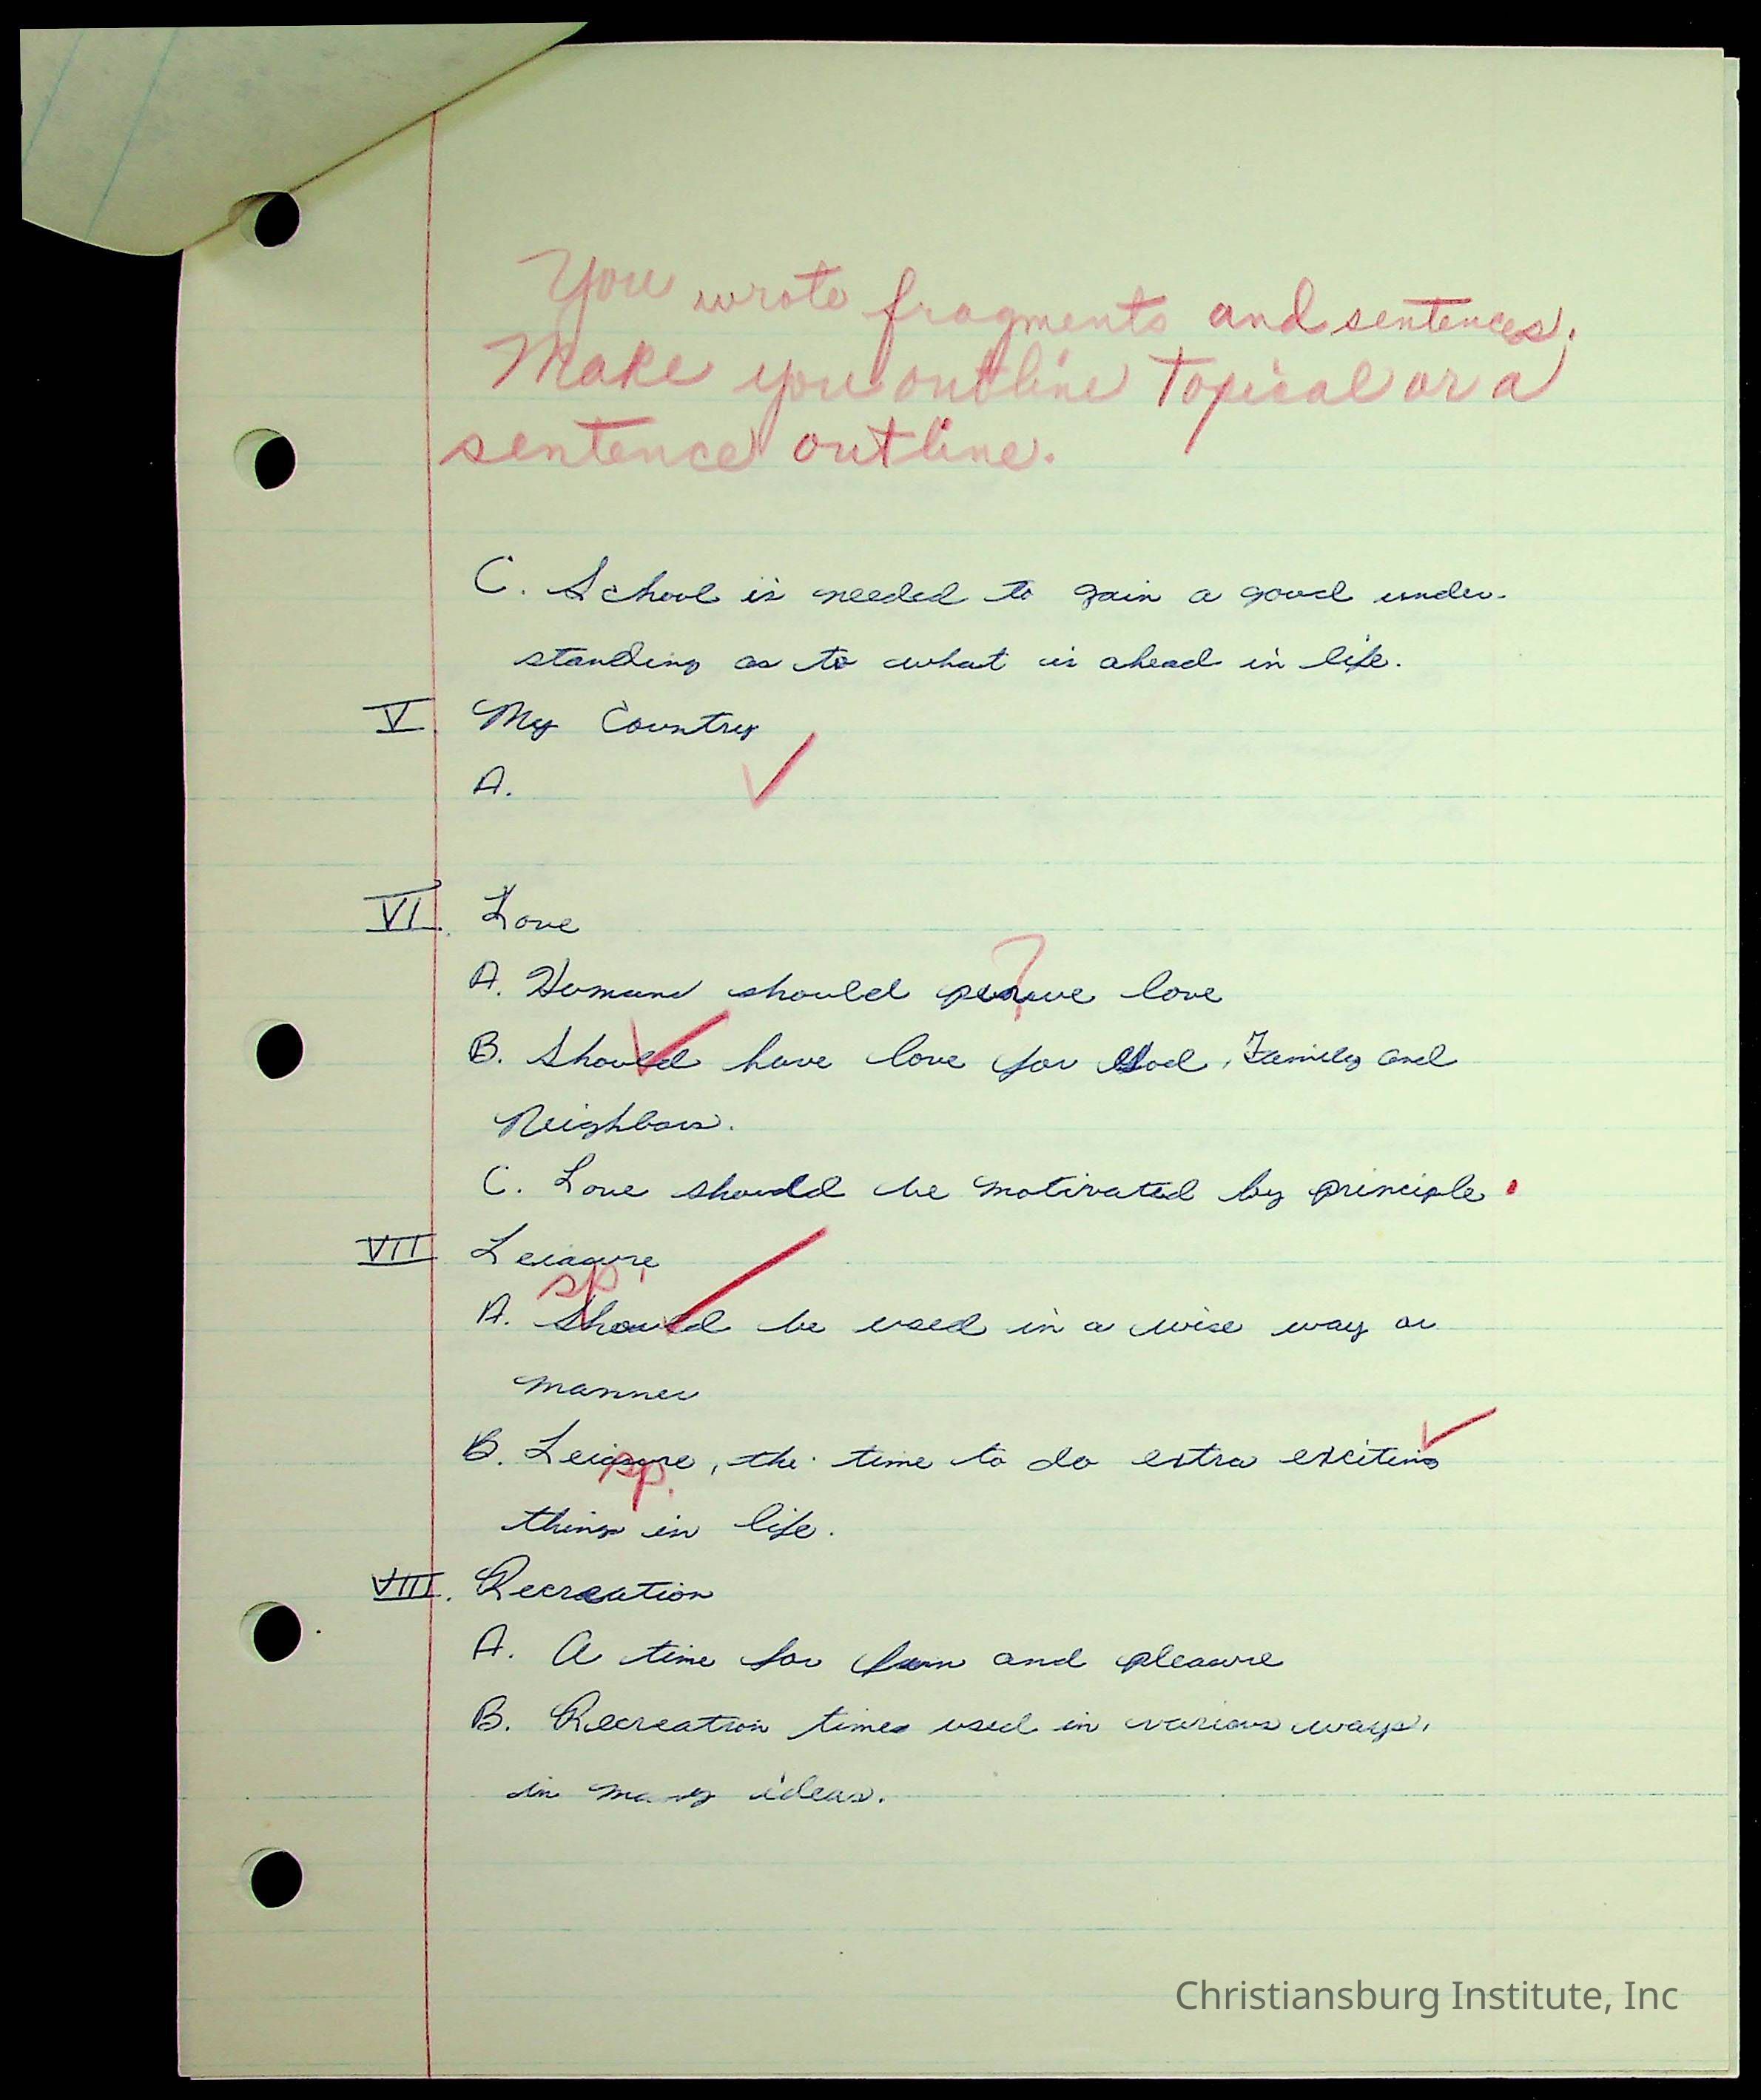 You wrote fragments and sentences.
Make you outline topical or a
sentence outline.
C. School is needed to gain a good under-
standing as to what is ahead in life.
V. My Country
A.
VI. Love
A. Humans should love
?
B. Should have love for God, Family and
Neighbors.
C. Love should be motivated by principle.
VII Leiasure
sp.
A. Should be used in a wise way or
manner
B. Leiasure, the time to do extra exciting
sp.
things in life.
VIII. Recreation
A. A time for fun and pleasure
B. Recreation times used in various ways,
in many ideas.
Christiansburg Institute, Inc